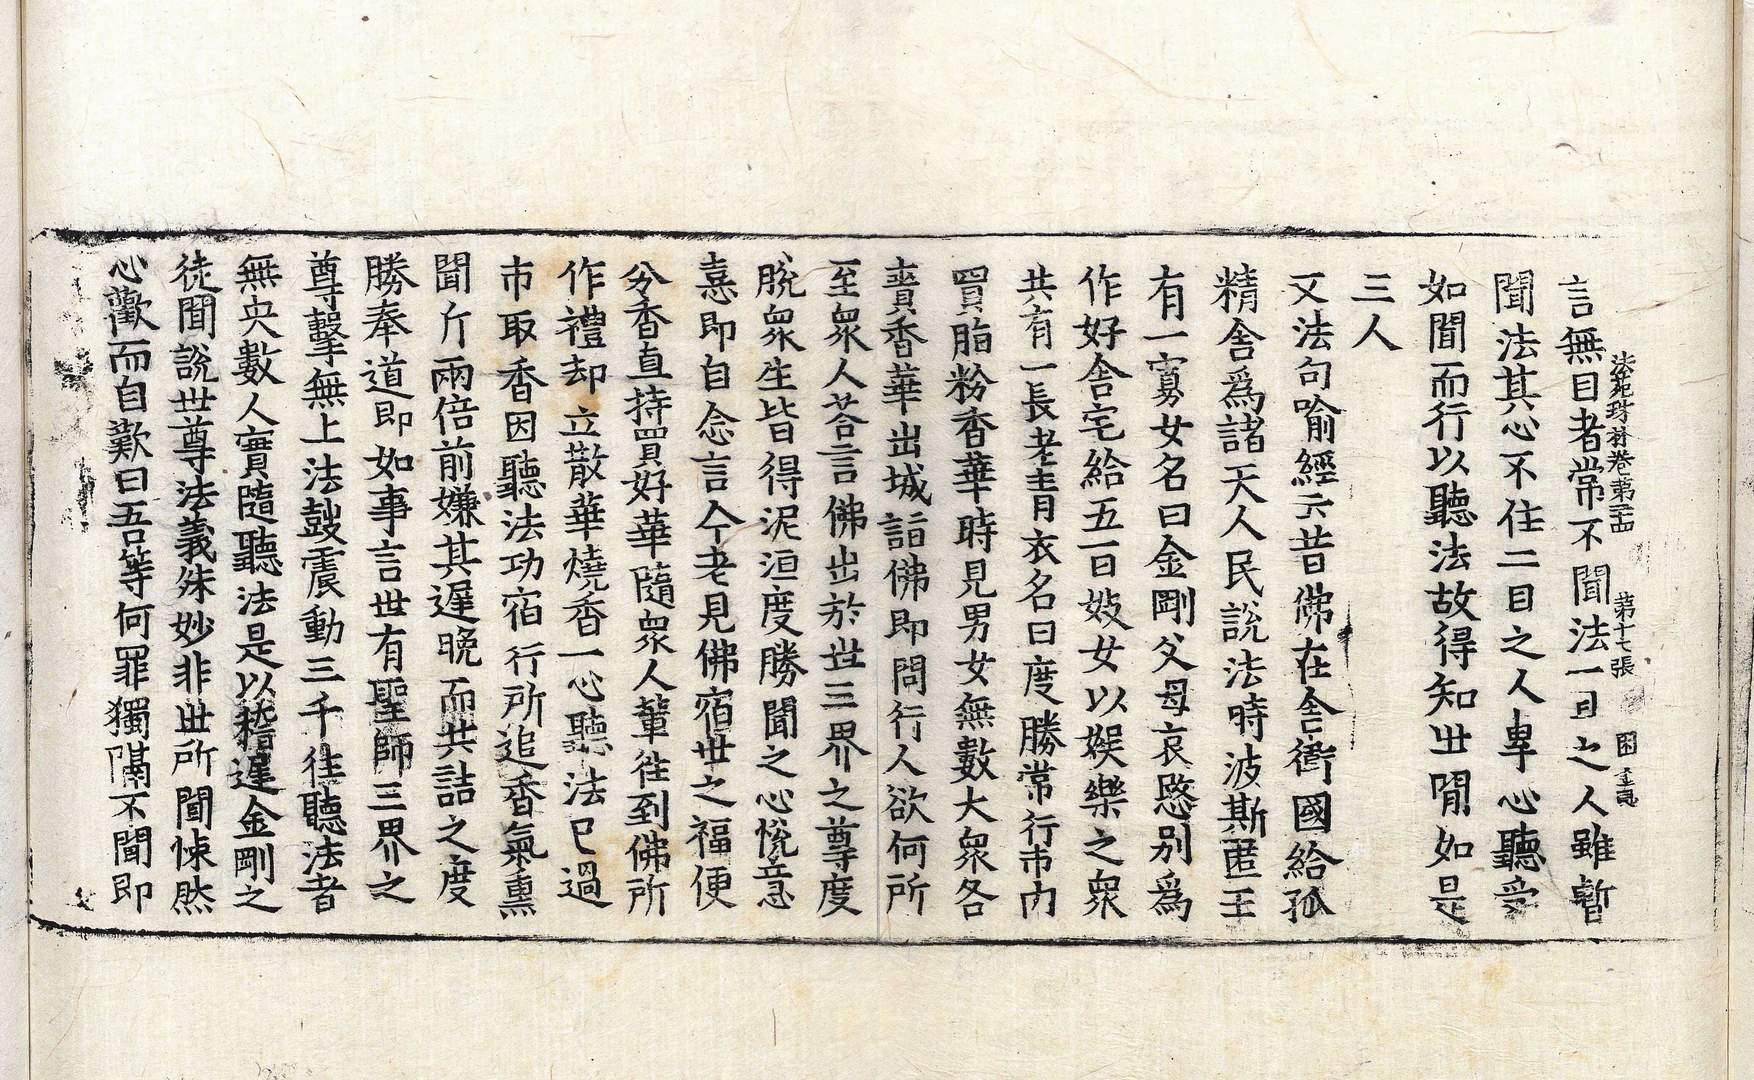 言無目者常不聞法一目之人雖暫
法苑珠林卷第二十四　第十七張　囷
聞法其心不住二目之人專心聽受
如聞而行以聽法故得知世間如是
三人
又法句喻經云昔佛在舍衛國給孤
精舍爲諸天人民說法時波斯匿王
有一寡女名曰金剛父母哀愍別爲
作好舍宅給五百妓女以娛樂之衆
共有一長老青衣名曰度勝常行市內
買脂粉香華時見男女無數大衆各
賷香華出城詣佛即問行人欲何所
至衆人荅言佛出於世三界之尊度
脫衆生皆得泥洹度勝聞之心悅意
憙即自念言今老見佛宿世之福便
分香直持買好華隨衆人輩往到佛所
作禮却立散華燒香一心聽法已過
市取香因聽法功宿行所追香氣熏
聞斤兩倍前嫌其遲晚而共詰之度
勝奉道即如事言世有聖師三界之
尊擊無上法鼓震動三千往聽法者
無央數人實隨聽法是以稽遲金剛之
徒聞說世尊法義殊妙非世所聞悚然
心歡而自歎曰吾等何罪獨隔不聞即